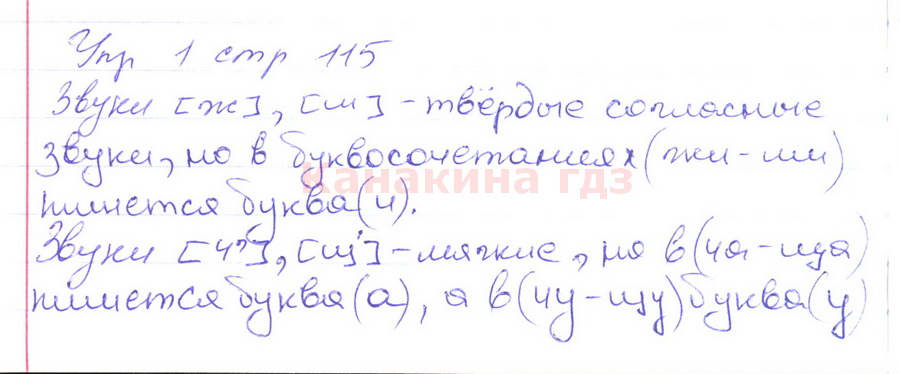 Упр 1 стр 115
Звуки [ж], [ш] - твёрдые согласные
звуки, но в буквосочетаниях (жи - ши)
канакина гдз
пишется буква (и).
Звуки [ч'], [щ'] - мягкие, но в (ча - ща)
пишется буква (а), а в (чу - щу) буква (у)